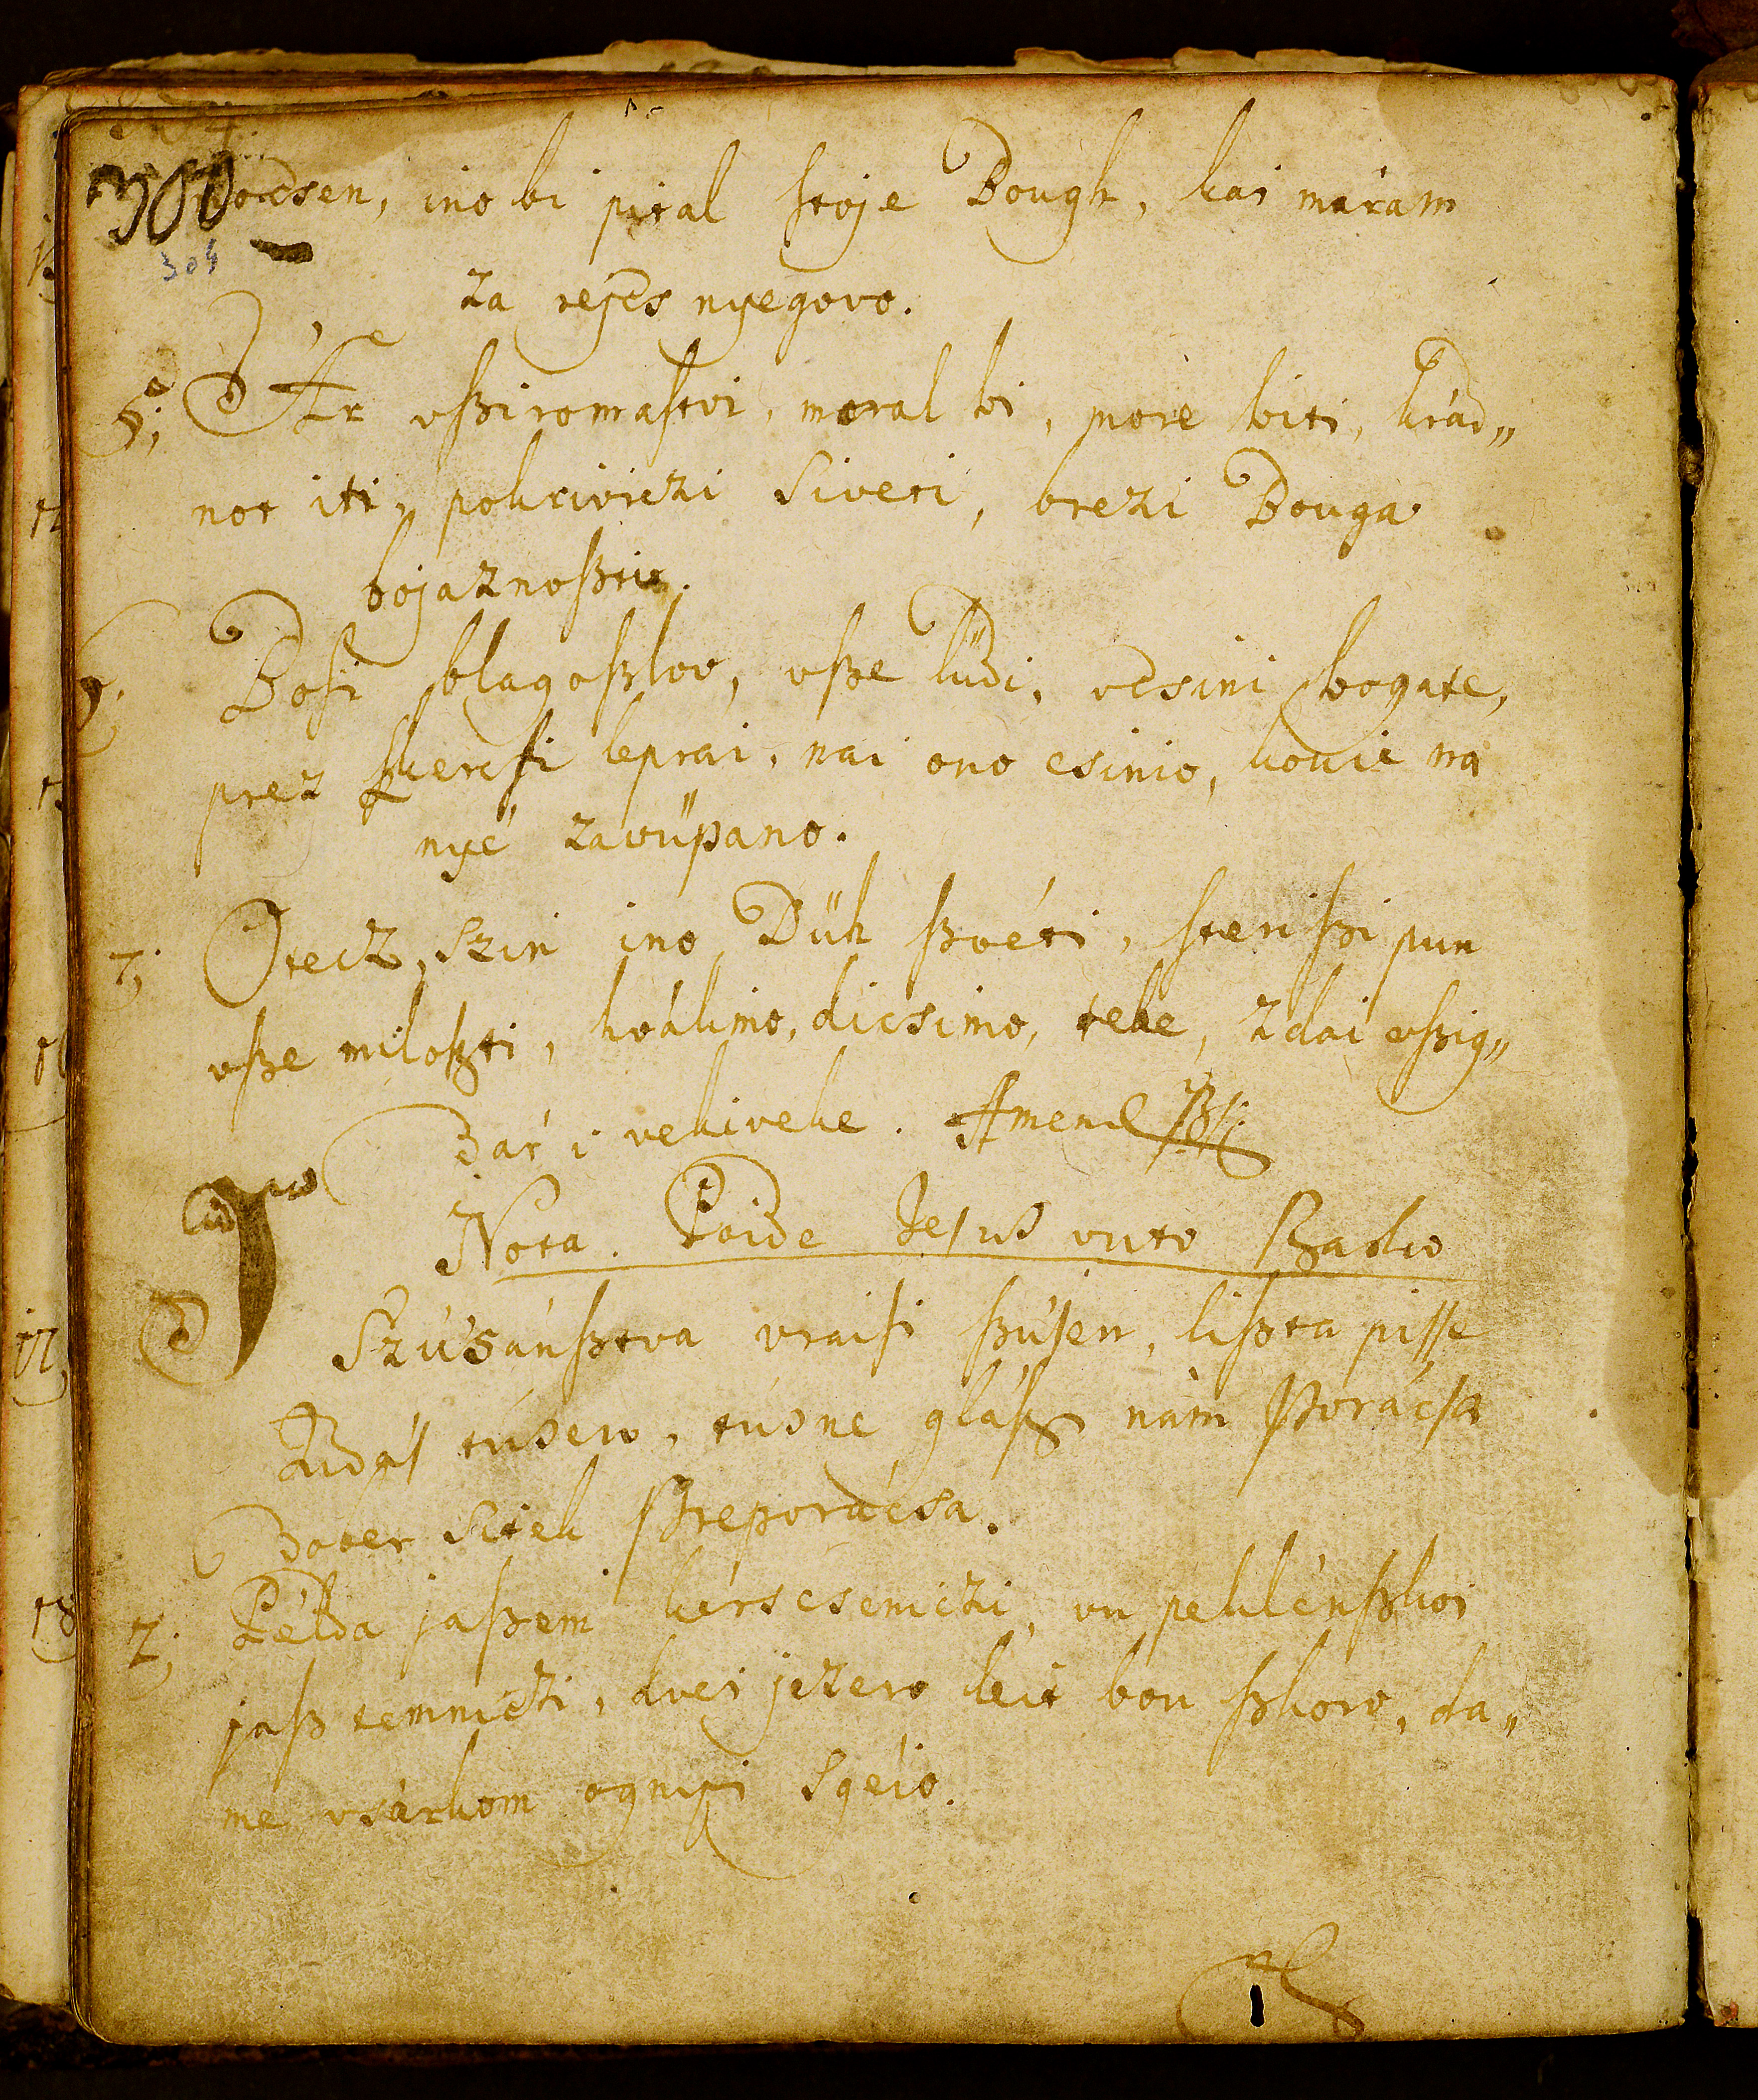 300
304
vocsen, ino bi pital ſtoje Bough, kai máram
za réjcs nyegovo.
5. Ar vſziromaſtvi, moral bi, more biti, krád„
not iti, pokriviczi siveti, brezi Bouga
bojaznoſzti.
6. Bosi blagoſzlov, vſze lüdi, vcsini bogate,
prez ſzkerſti leprai, nai ono csinio, kouie na
nyé zavüpano.
7. Otecz, Szin ino Düh ſzvéti, ſteri ſzi pun
vſze miloſzti, hválimo, dicsimo, tebe, zdai vſzig„
dar i vekiveke. Amen
Nota. Poide Jesus vuto ſzadio
Szúsánſztva vraisi ſzúsen, liſzta piſſe
Judás tusen, tusne gláſz nám ſzporácsa
Dober sitek ſzreporácsa.
2. Példa jaſzem kérscseniczi, vu peklénſzkoi
jaſz temniczi, dvei jezero léit bou ſzkoro, da„
me vsárkom ognyi sgéio.